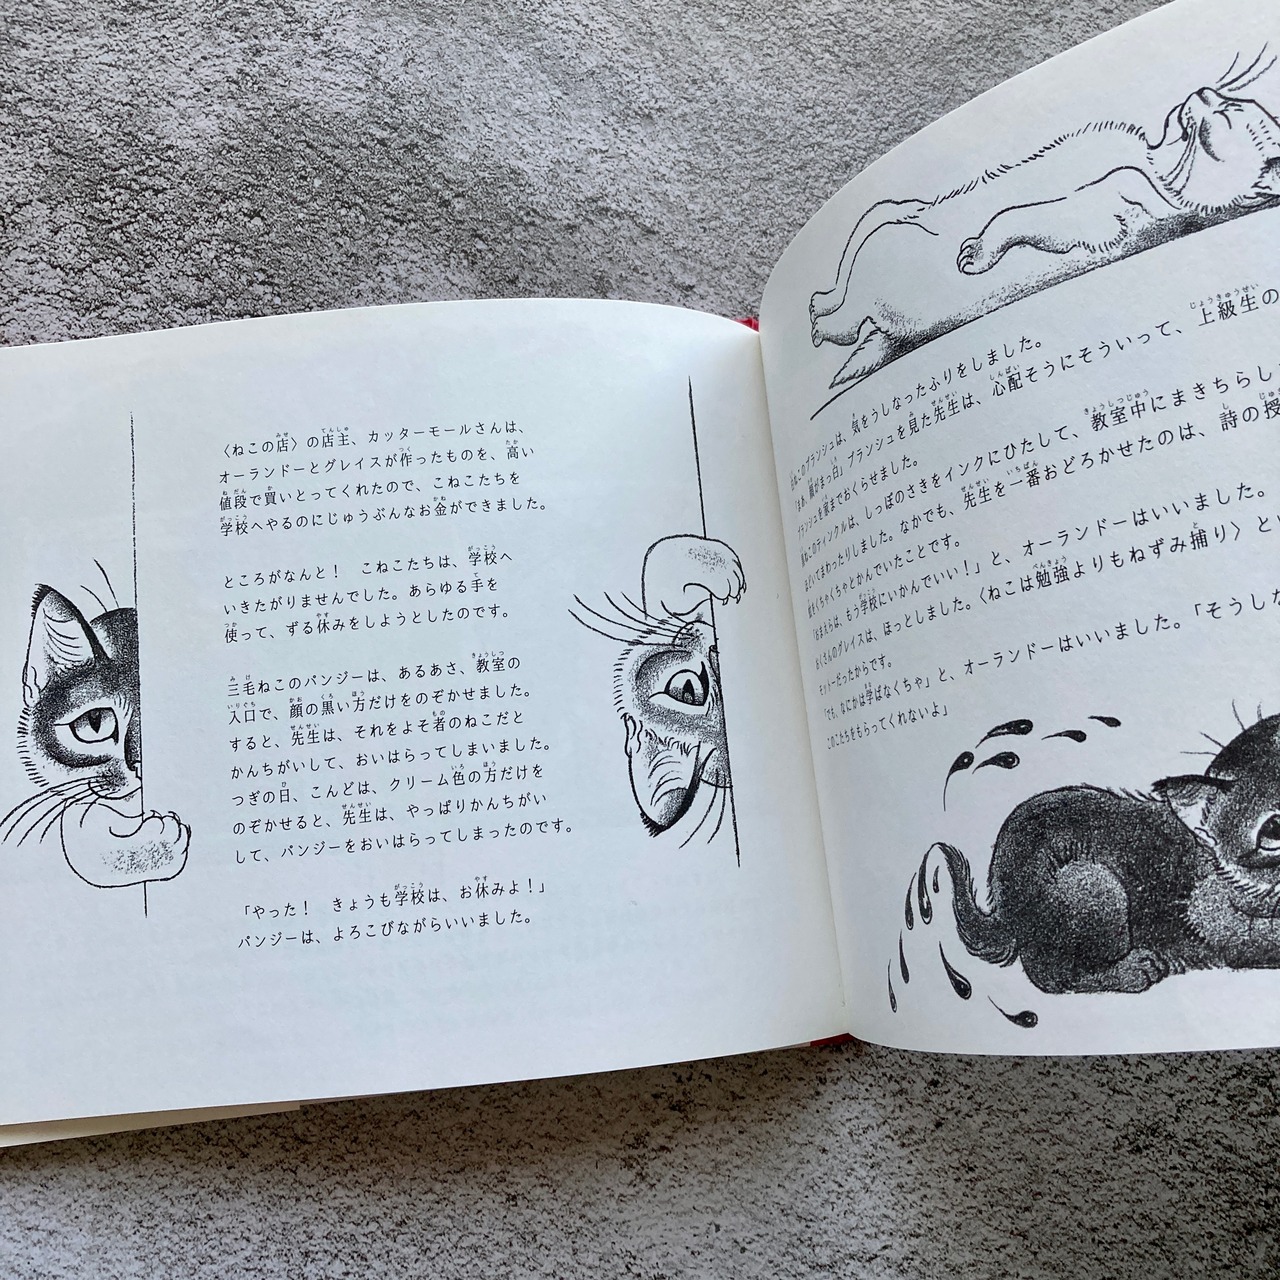 〈ねこの店〉の店主、カッターモールさんは、
オーランドーとグレイスが作ったものを、高い
値段で買いとってくれたので、こねこたちを
学校へやるのにじゅうぶんなお金ができました。
ところがなんと！　こねこたちは、学校へ
いきたがりませんでした。あらゆる手を
使って、ずる休みをしようとしたのです。
三毛ねこのパンジーは、あるあさ、教室の
入口で、顔の黒い方だけをのぞかせました。
すると、先生は、それをよそ者のねこだと
かんちがいして、おいはらってしまいました。
つぎの日、こんどは、クリーム色の方だけを
のぞかせると、先生は、やっぱりかんちがい
して、パンジーをおいはらってしまったのです。
「やった！　きょうも学校は、お休みよ！」
パンジーは、よろこびながらいいました。
白ねこのブランシュは、気をうしなったふりをしました。
「まあ、顔がまっ白」ブランシュを見た先生は、心配そうにそういって、上級生の
ブランシュを家までおくらせました。
黒ねこのティンクルは、しっぽのさきをインクにひたして、教室中にまきちらし
てまわったりしました。なかでも、先生を一番おどろかせたのは、詩の授
をくちゃくちゃとかんでいたことです。
「おまえらは、もう学校にいかんでいい！」と、オーランドーはいいました。
おくさんのグレイスは、ほっとしました。〈ねこは勉強よりもねずみ捕り〉と
モットーだったからです。
「でも、なにかは学ばなくちゃ」と、オーランドーはいいました。「そうしな
このこたちをもらってくれないよ」